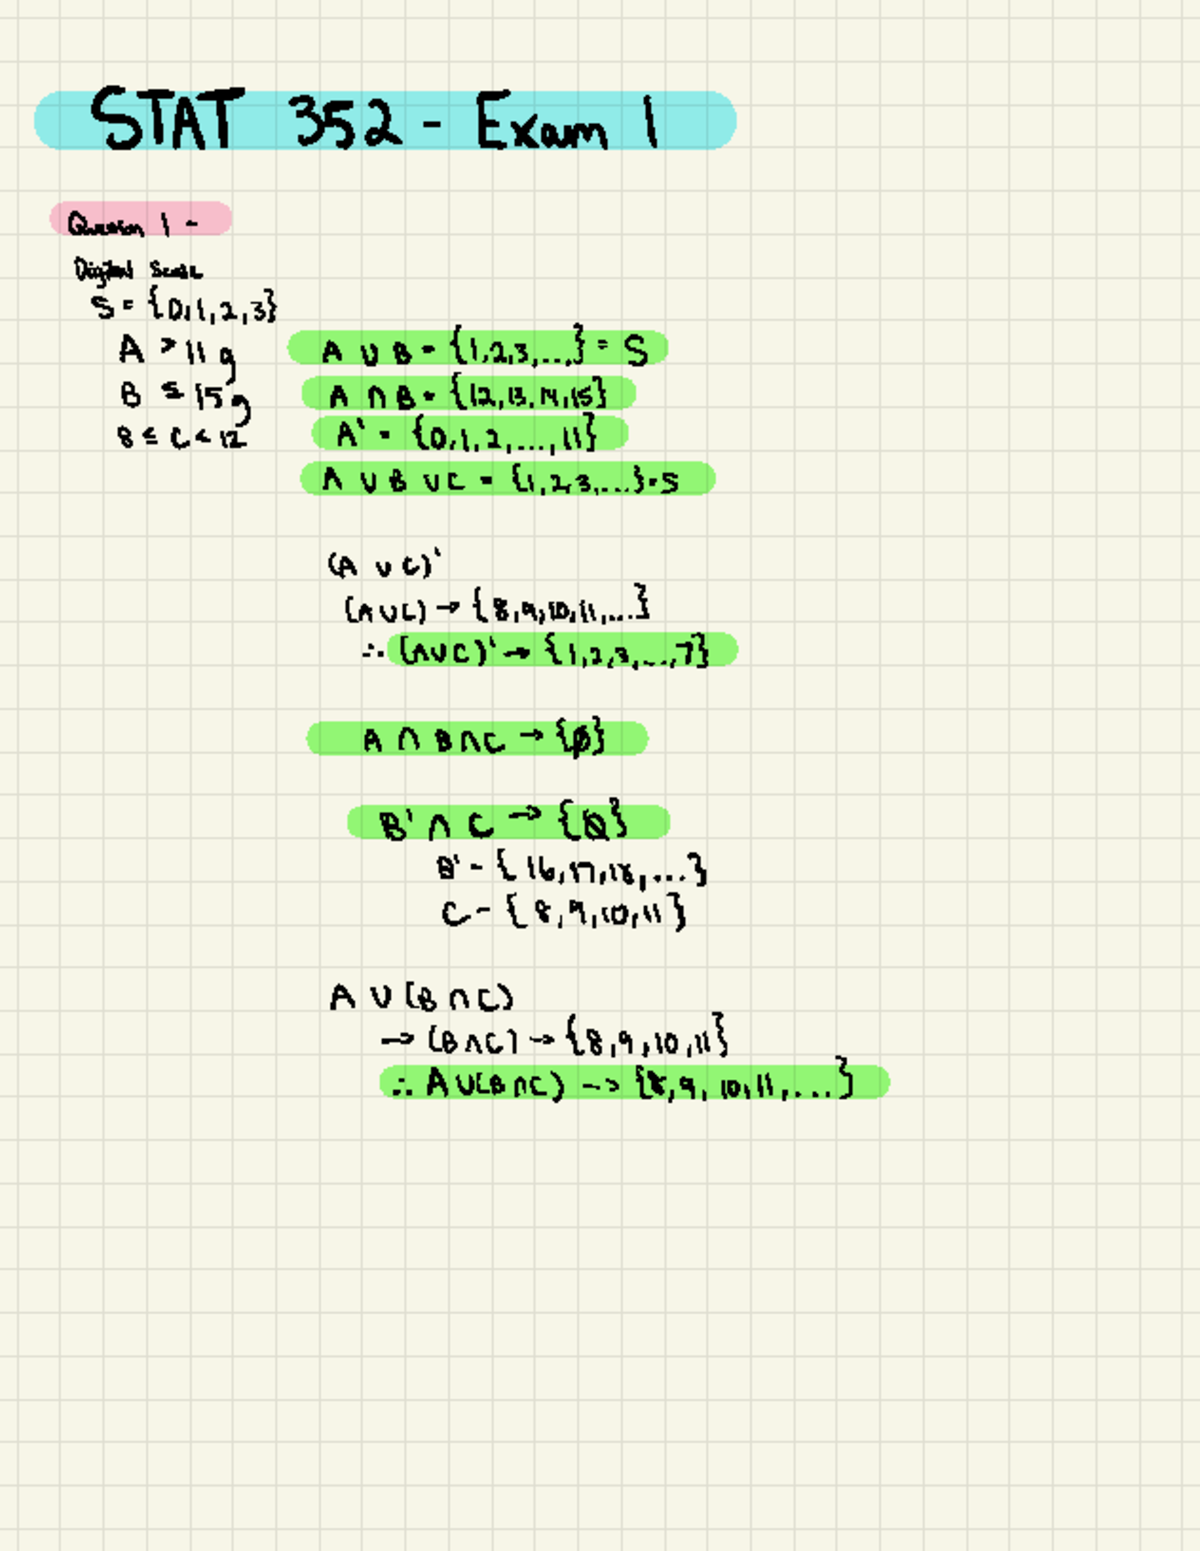 STAT 352 - Exam 1
Question 1 -
Digital Scale
S = {0,1,2,3}
A > 11 g
A ∪ B = {1,2,3,...} = S
B ≤ 15 g
A ∩ B = {12,13,14,15}
8 ≤ C < 12
A' = {0,1,2,...,11}
A ∪ B ∪ C = {1,2,3,...} = S
(A ∪ C)'
(A ∪ C) → {8,9,10,11,...}
∴ (A ∪ C)' → {1,2,3,...,7}
A ∩ B ∩ C → {∅}
B' ∩ C → {∅}
B' - {16,17,18,...}
C - {8,9,10,11}
A ∪ (B ∩ C)
→ (B ∩ C) → {8,9,10,11}
∴ A ∪ (B ∩ C) --> {8,9,10,11,...}